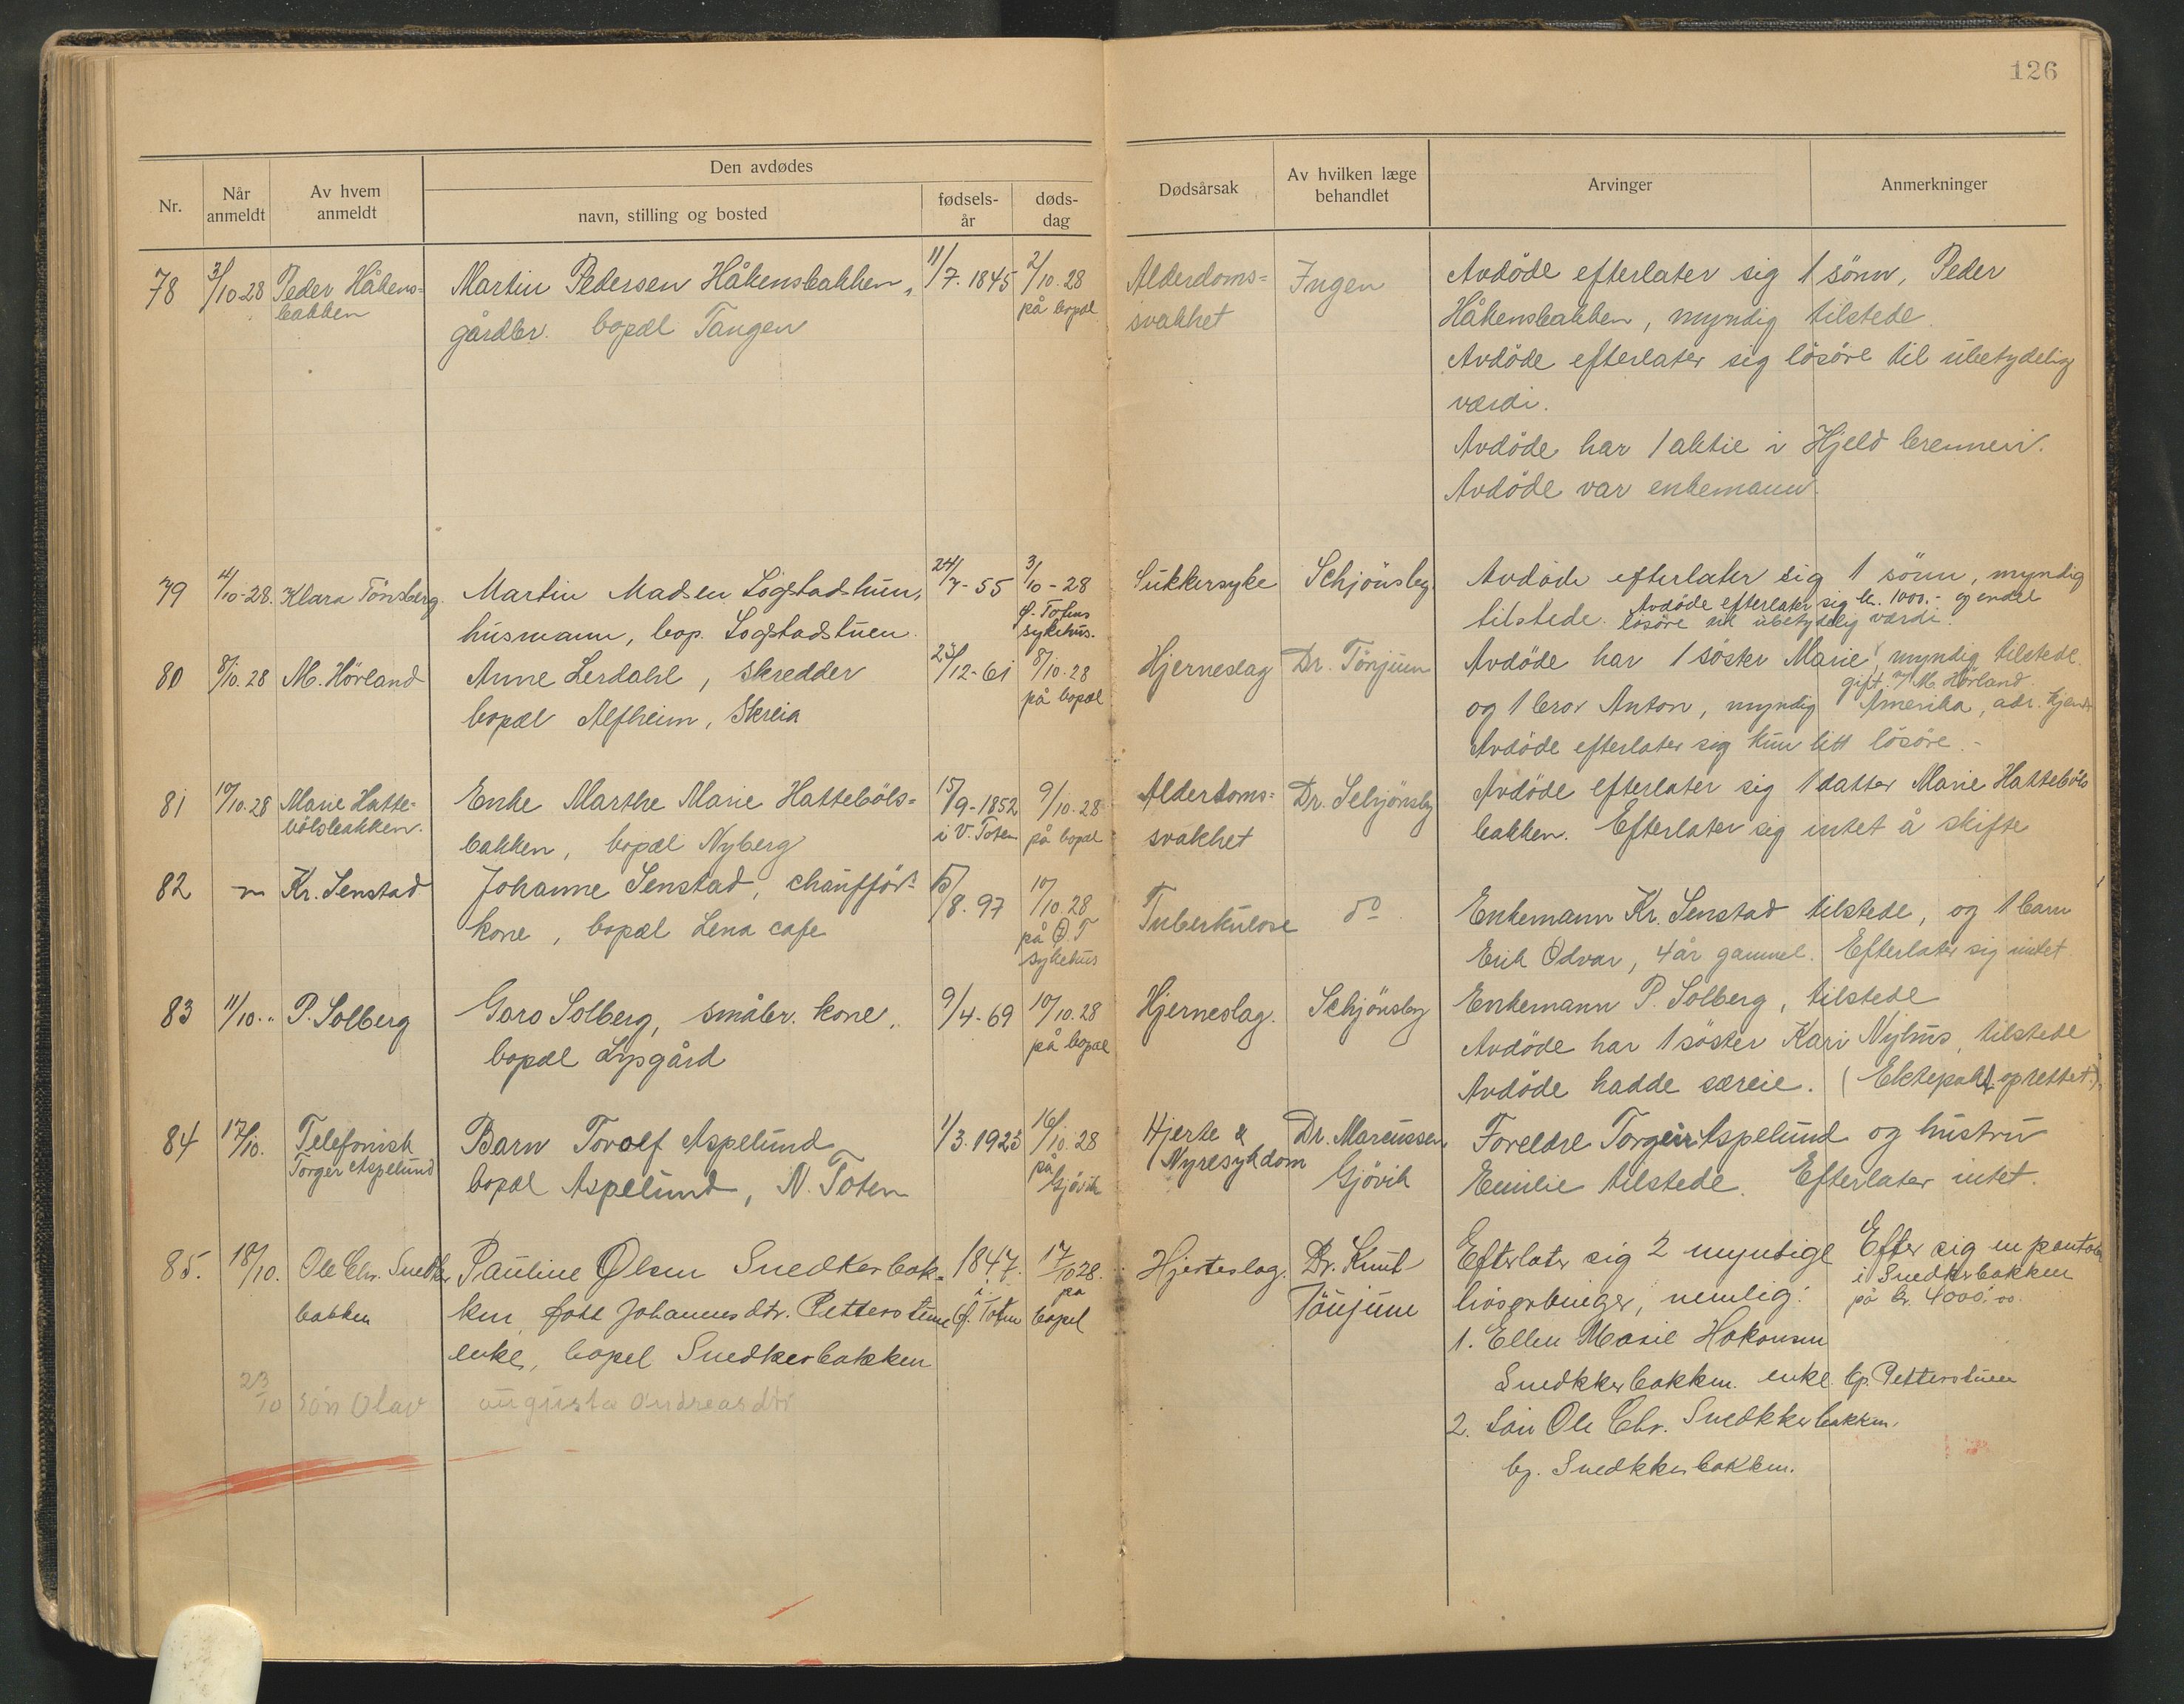 126
Nr.
Når anmeldt
Av hvem anmeldt
Den avdødes
navn, stilling og bosted
fødsels-
år
døds-
dag
Dødsårsak
Av hvilken læge
behandlet
Arvinger
Anmerkninger
78
3/10-28
Peder Håkens-
bakken
Martin Pedersen Håkensbakken,
gårdbr. bopæl Tangen
11/7. 1845
2/10. 28
på bopæl
Alderdoms=
svakhet
Ingen
Avdöde efterlater sig 1 sönn, Peder
Håkensbakken, myndig tilstede.
Avdöde efterlater sig lösöre til ubetydelig
værdi.
Avdöde har 1 aktie i Hjeld brenneri.
Avdöde var enkemann.
79
4/10-28.
Klara Tönsberg.
Martin Madsen Logstadstuen,
husmann, bop. Logstadstuen.
24/7-55
3/10-28
Ø. Totens
sykehus.
Sukkersyke
Schjönsby
Avdöde efterlater sig 1 sönn, myndig
tilstede. Avdöde efterlater sig kr. 1000.- og endel
lösöre til ubetydelig værdi.
80
8/10. 28
M. Hörland
Anne Lerdahl, skredder
bopæl Alfheim, Skreia
23/12-61
8/10. 28
på bopæl
Hjerneslag
Dr. Tönjum
Avdöde har 1 söster Marie, myndig tilstede.
gift m/ M. Hörland.
og 1 bror Anton, myndig Amerika, adr. kjendt
Avdöde efterlater sig kun litt lösöre.-
81
10/10. 28
Marie Hatte-
bölsbakken.
Enke Marthe Marie Hatteböls=
bakken, bopæl Nyberg
15/9-1852
i V. Toten
9/10. 28
på bopæl
Alderdoms=
svakhet
Dr. Schjönsby
Avdöde efterlater sig 1 datter Marie Hatteböls
bakken. Efterlater sig intet å skifte
82
Kr. Senstad
Johanne Senstad, chaufför-
kone, bopæl Lena cafe
15/8. 97
10/10. 28
på Ø. T
sykehus
Tuberkulose
do
Enkemann Kr. Senstad tilstede, og 1 barn
Erik Odvar, 4 år gammel. Efterlater sig intet.
83
11/10. "
P. Solberg
Goro Solberg, småbr. kone,
bopæl Lysgård
9/4-69
10/10. 28
på bopæl
Hjerneslag.
Schjönsby
Enkemann P. Solberg, tilstede
Avdöde har 1 söster Kari Nyhus, tilstede
Avdöde hadde særeie. (Ektepakt oprettet).
84
17/10.
Telefonisk
Torger Aspelund
Barn Torolf Aspelund
bopæl Aspelund, N. Toten
1/3. 1923
16/10. 28
på
Gjövik
Hjerte &
Nyresykdom
Dr. Marcussen
Gjövik
Foreldre Torgeir Aspelund og hustru
Emilie tilstede. Efterlater intet.
85.
18/10.
Ole Chr. Snedker
bakken
Pauline Olsen Snedkerbak-
ken, født Johannesdtr. Petterstuen
enke, bopel Snedkerbakken
1847.
i
Ø. Toten
17/10 28.
på
bopel
Hjerteslag.
Dr. Knut
Tönjum
Efterlater sig 2 myndige
livsarvinger, nemlig:
1. Ellen Marie Hakonsen
Snedkkerbakken. enke bp. Petterstuen
2. Sön Ole Chr. Snedkkerbakken.
bp. Snedkkerbakken.
Efter sig en pantobl
i Snedkerbakken
på kr. 4000,00.
23/10
Sön Olav
Augusta Andreasdtr